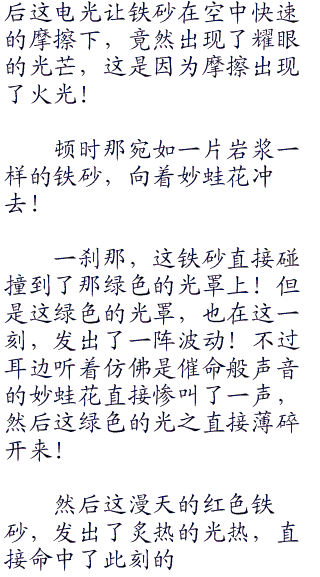 后这电光让铁砂在空中快速
的摩擦下，竟然出现了耀眼
的光芒，这是因为摩擦出现
了火光！
顿时那宛如一片岩浆一
样的铁砂，向着妙蛙花冲
去！
一刹那，这铁砂直接碰
撞到了那绿色的光罩上！但
是这绿色的光罩，也在这一
刻，发出了一阵波动！不过
耳边听着仿佛是催命般声音
的妙蛙花直接惨叫了一声，
然后这绿色的光之直接薄碎
开来！
然后这漫天的红色铁
砂，发出了炙热的光热，直
接命中了此刻的